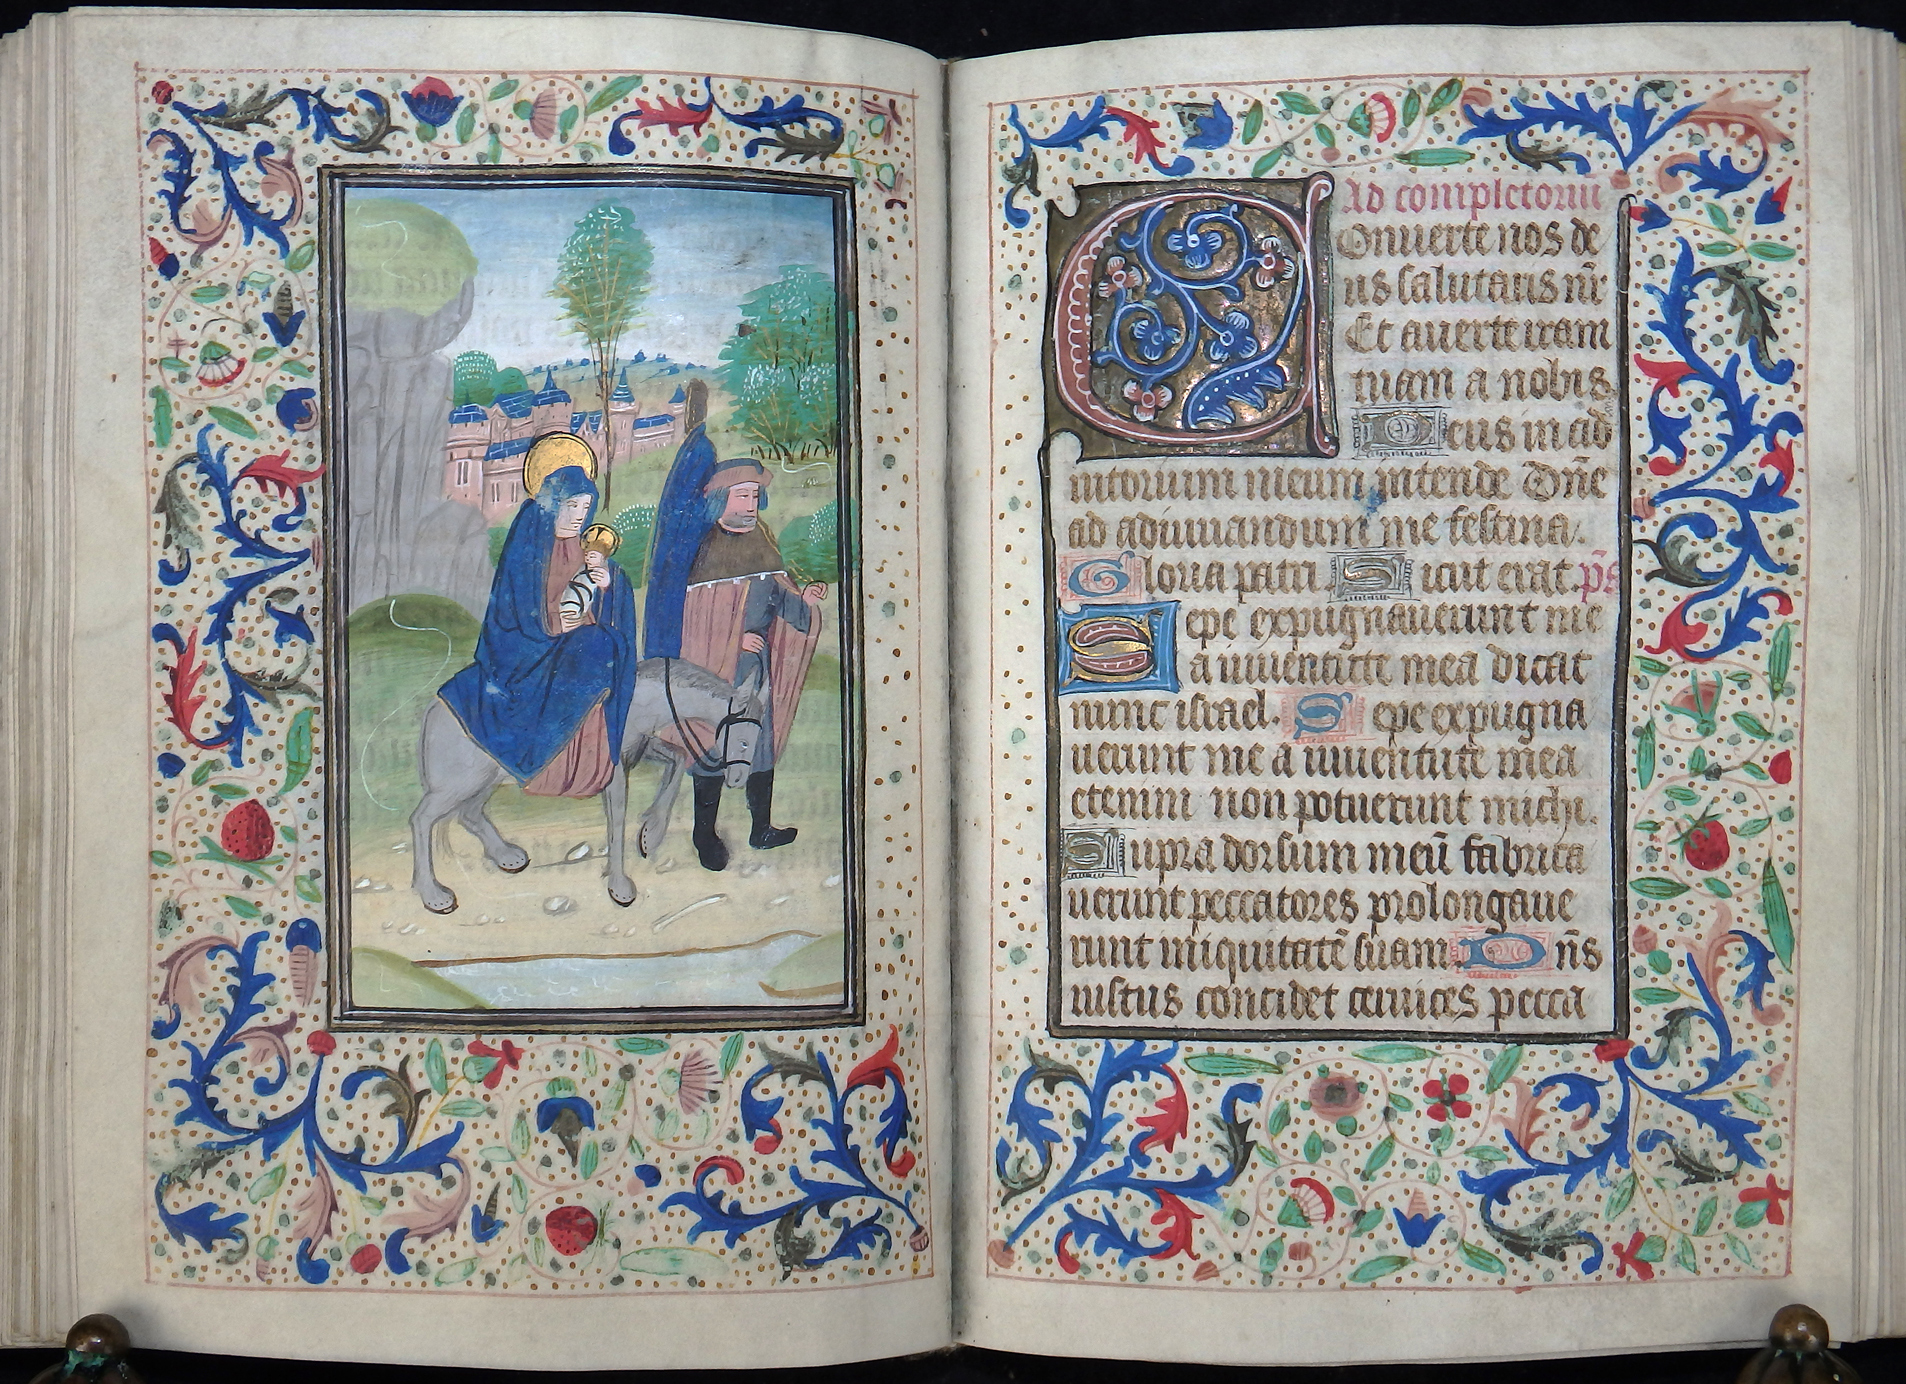 Ad completoriu
Conuerte nos de
us salutaris nr̄
Et auerte iram
tuam a nobis
Deus in ad
iutorium meum intende Dn̄e
ad adiuuandum me festina.
Gloria patri Sicut erat p̄s
Sepe expugnauerunt me
a iuuentute mea dicat
nunc israel. Sepe expugna
uerunt me a iuuentute mea
etenim non potuerunt michi.
Supra dorsum meū fabrica
uerunt peccatores prolongaue
runt iniquitatē suam. Dn̄s
iustus concidet ceruices pecca